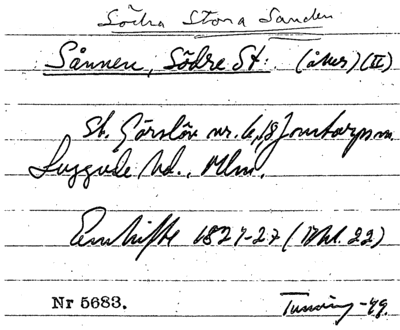 Södra Stora Sanden
Sånnen, Södre St: (åker) (II)
St. Görslöv nr. 6, 18 Jonstorps sn
Luggude hd., Mlm.
Enskifte 1827-27 (Akt. 22)
Nr 5683.
Tuneing -49.